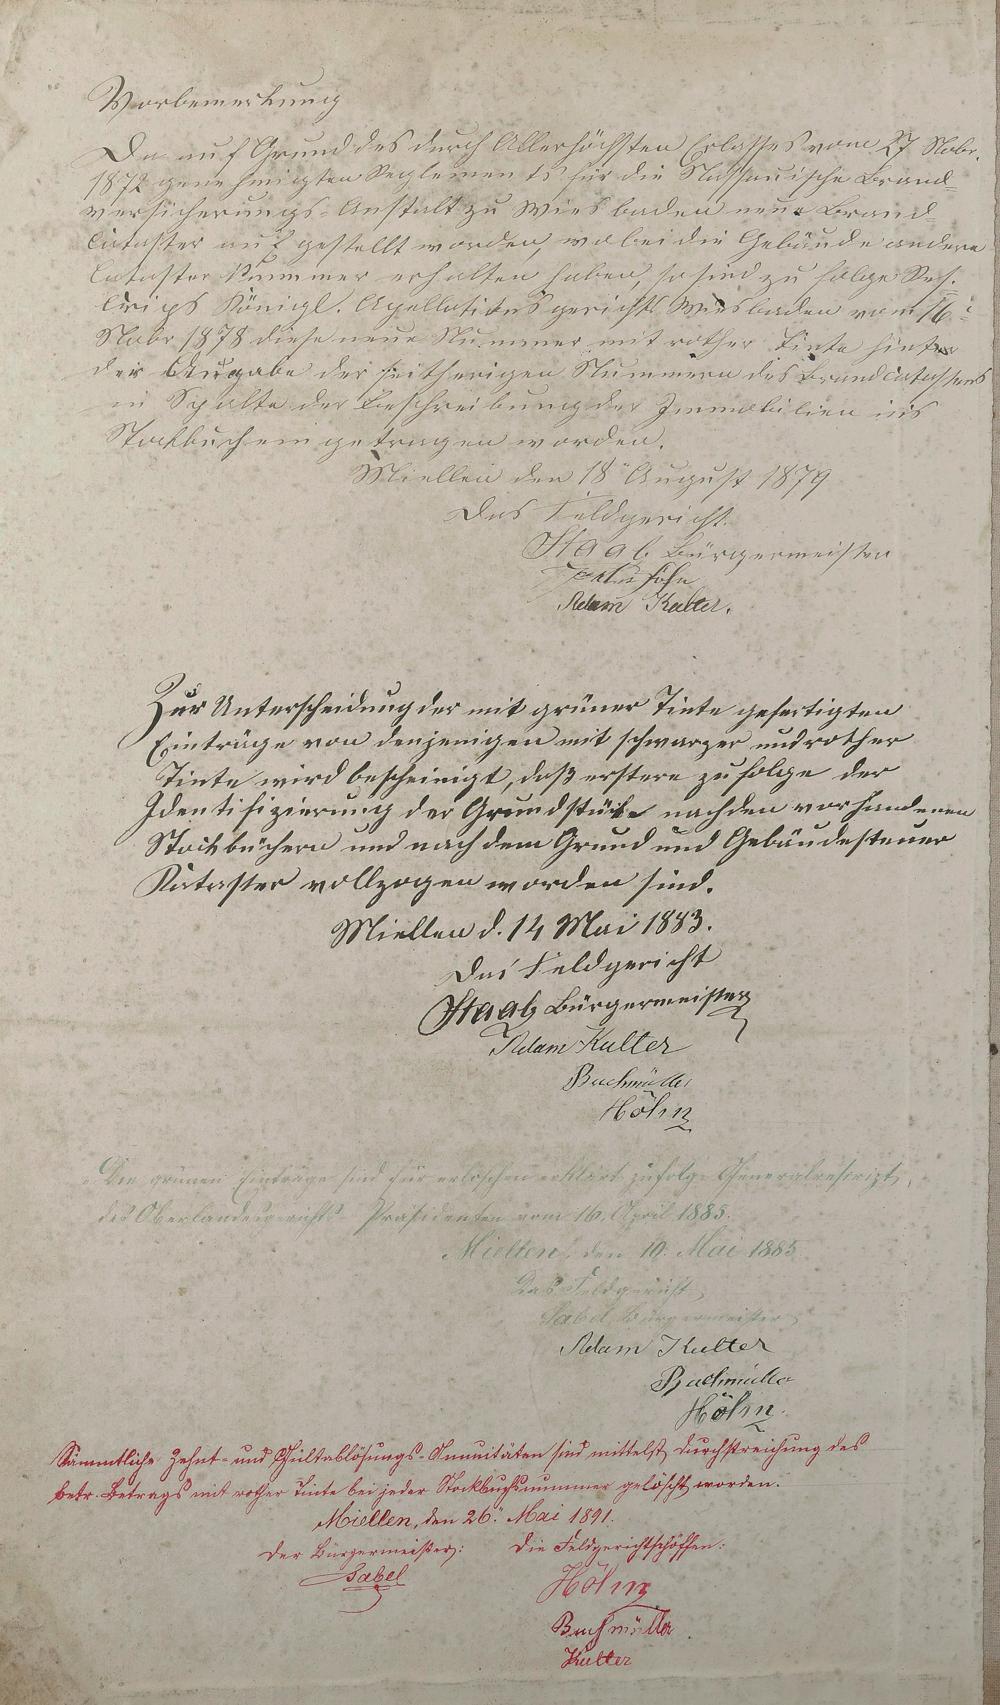 Vorbemerkung
Da auf Grund des durch Allerhöchsten Erlasses vom 27 Nobr.
1872 genehmigten Reglements für die Nassauische Brand=
versicherungs-Anstalt zu Wiesbaden neue Brand=
Cataster aufgestellt worden, wobei die Gebäude andere
Cataster Nummer erhalten haben, so sind zu folge Res.
crips Königl. Apellationsgerichts Wiesbaden vom 16
Nobr 1878 diese neue Nummer mit rother Tinte hinter
der Angabe der seitherigen Nummern des Brandcatasters
in Spalte der Beschreibung der Immobilien ins
Stockbuch eingetragen worden.
Miellen den 18 August 1879
Das Feldgericht.
Staab Bürgermeister
Adam Kulter.
Zur Unterscheidung der mit grüner Tinte gefertigten
Einträge von denjenigen mit schwarzer und rother
Tinte wird bescheinigt, daß erstere zufolge der
Identifizierung der Grundstücke nach den vorhandenen
Stockbüchern und nach dem Grund und Gebäudesteuer
Kataster vollzogen worden sind.
Miellen d. 14 Mai 1883.
Das Feldgericht
Staab Bürgermeister
Adam Kulter
Bachmüller
Höhn
Die grünen Einträge sind für erloschen erklärt zufolge Generalrescript
des Oberlandesgerichts-Präsidenten vom 16. April 1885.
Miellen, den 10. Mai 1885
Das Feldgericht
Sabel Bürgermeister
Adam Kulter
Bachmüller
Höhn
Sämmtliche Zehnt- und Gültablösungs-Annuitäten sind mittelst Durchstreichung des
betr. Betrags mit rother Tinte bei jeder Stockbuchsnummer gelöscht worden.
Miellen, den 26. Mai 1891.
Der Bürgermeister: Die Feldgerichtschöffen:
Sabel
Höhn
Bachmüller
Kulter